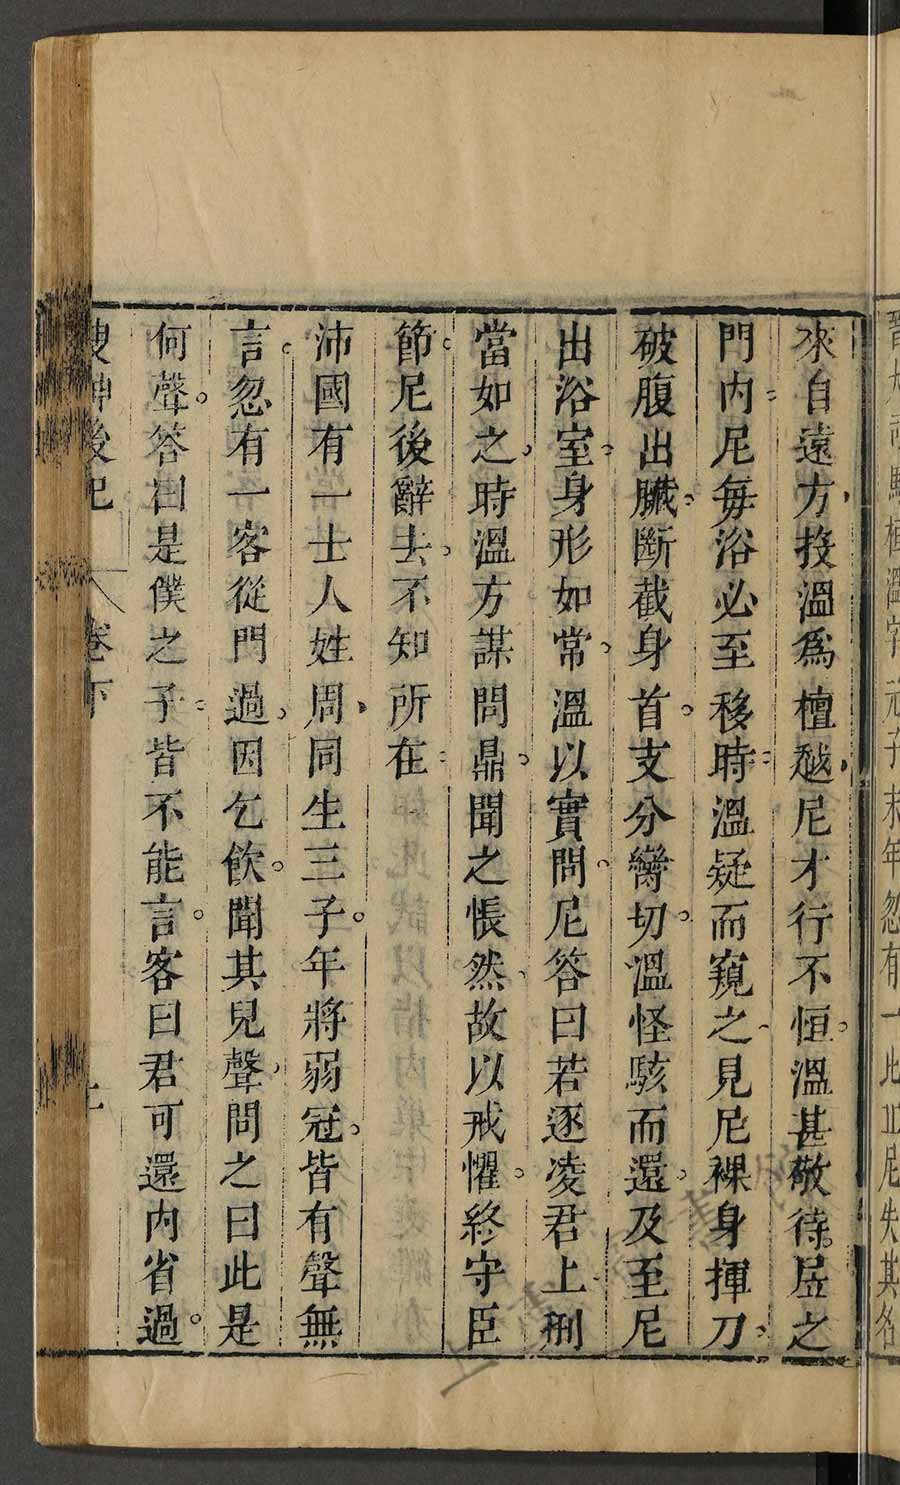 晉大司馬桓溫字元子末年忽有一比丘尼失其名
來自遠方投溫爲檀越尼才行不恒溫甚敬待居之
門內尼每浴必至移時溫疑而窺之見尼裸身揮刀
破腹出臟斷截身首支分臠切溫怪駭而還及至尼
出浴室身形如常溫以實問尼答曰若逐凌君上刑
當如之時溫方謀問鼎聞之悵然故以戒懼終守臣
節尼後辭去不知所在
沛國有一士人姓周同生三子年將弱冠皆有聲無
言忽有一客從門過因乞飲聞其兒聲問之曰此是
何聲答曰是僕之子皆不能言客曰君可還內省過
搜神後記 卷下